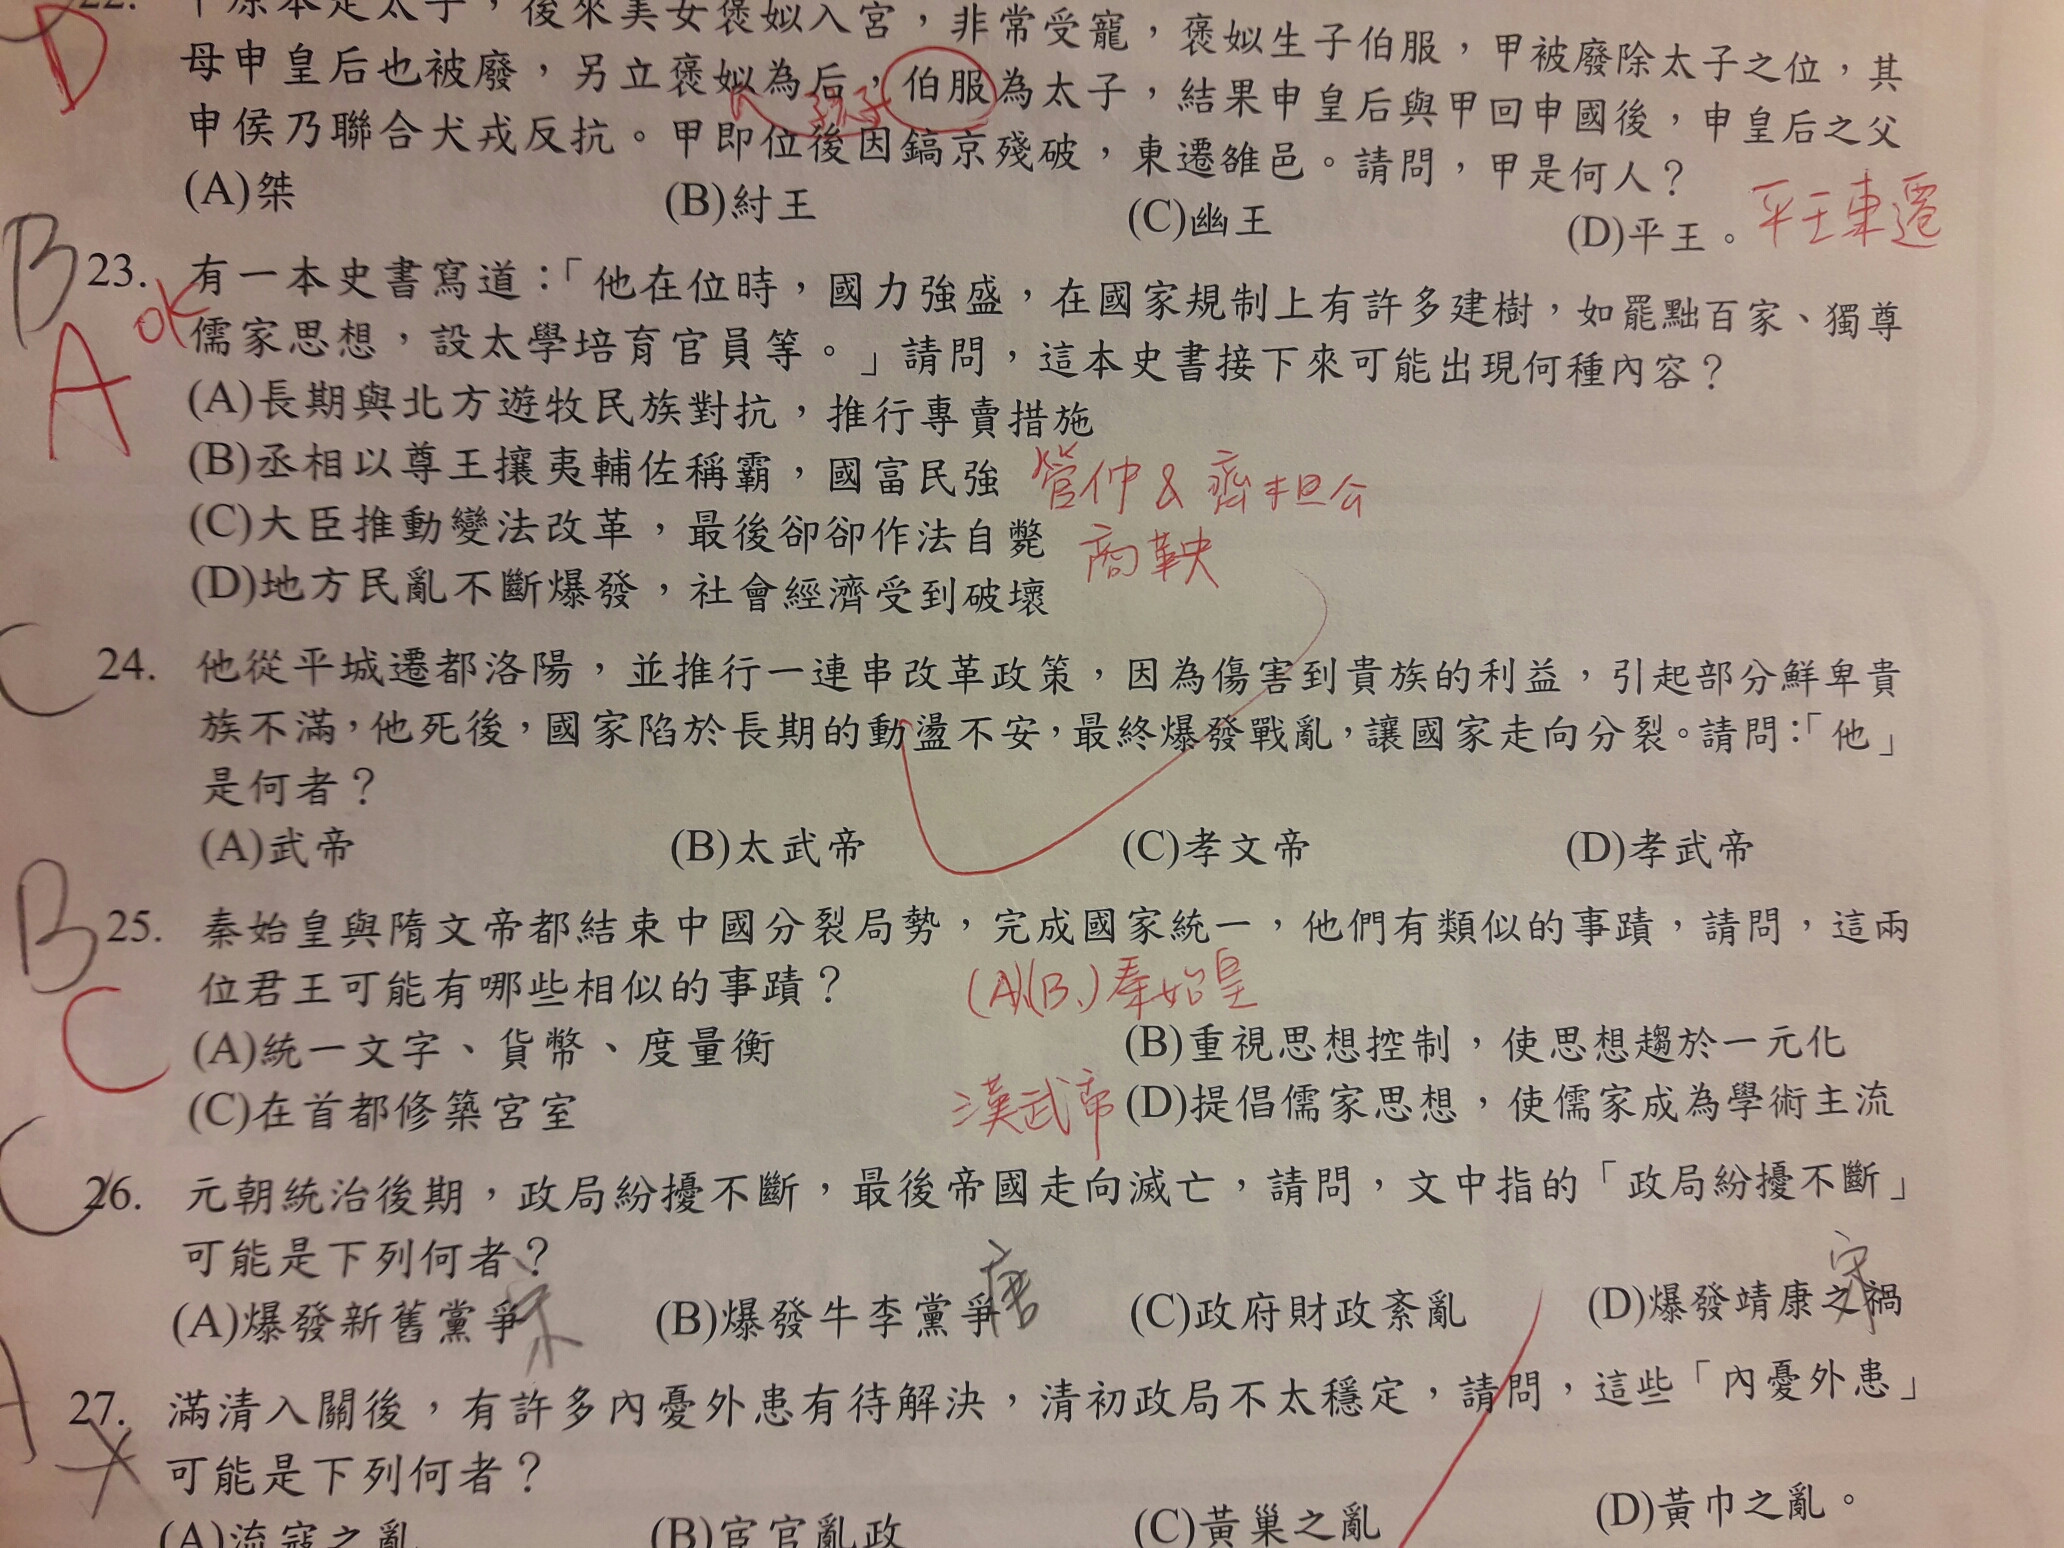 22. 甲原本是太子，後來美女褒姒入宮，非常受寵，褒姒生子伯服，甲被廢除太子之位，其
D
母申皇后也被廢，另立褒姒為后，伯服為太子，結果申皇后與甲回申國後，申皇后之父
申侯乃聯合犬戎反抗。甲即位後因鎬京殘破，東遷雒邑。請問，甲是何人？
(A)桀 (B)紂王 (C)幽王 (D)平王。 平王東遷
B 23. 有一本史書寫道：「他在位時，國力強盛，在國家規制上有許多建樹，如罷黜百家、獨尊
A ok 儒家思想，設太學培育官員等。」請問，這本史書接下來可能出現何種內容？
(A)長期與北方遊牧民族對抗，推行專賣措施
(B)丞相以尊王攘夷輔佐稱霸，國富民強 管仲 & 齊桓公
(C)大臣推動變法改革，最後卻卻作法自斃 商鞅
(D)地方民亂不斷爆發，社會經濟受到破壞
C 24. 他從平城遷都洛陽，並推行一連串改革政策，因為傷害到貴族的利益，引起部分鮮卑貴
族不滿，他死後，國家陷於長期的動盪不安，最終爆發戰亂，讓國家走向分裂。請問：「他」
是何者？
(A)武帝 (B)太武帝 (C)孝文帝 (D)孝武帝
B 25. 秦始皇與隋文帝都結束中國分裂局勢，完成國家統一，他們有類似的事蹟，請問，這兩
C 位君王可能有哪些相似的事蹟？ (A)(B)秦始皇
(A)統一文字、貨幣、度量衡 (B)重視思想控制，使思想趨於一元化
(C)在首都修築宮室 漢武帝 (D)提倡儒家思想，使儒家成為學術主流
C 26. 元朝統治後期，政局紛擾不斷，最後帝國走向滅亡，請問，文中指的「政局紛擾不斷」
可能是下列何者？
(A)爆發新舊黨爭 宋 (B)爆發牛李黨爭 唐 (C)政府財政紊亂 (D)爆發靖康之禍 宋
A 27. 滿清入關後，有許多內憂外患有待解決，清初政局不太穩定，請問，這些「內憂外患」
可能是下列何者？
(A)流寇之亂 (B)宦官亂政 (C)黃巢之亂 (D)黃巾之亂。